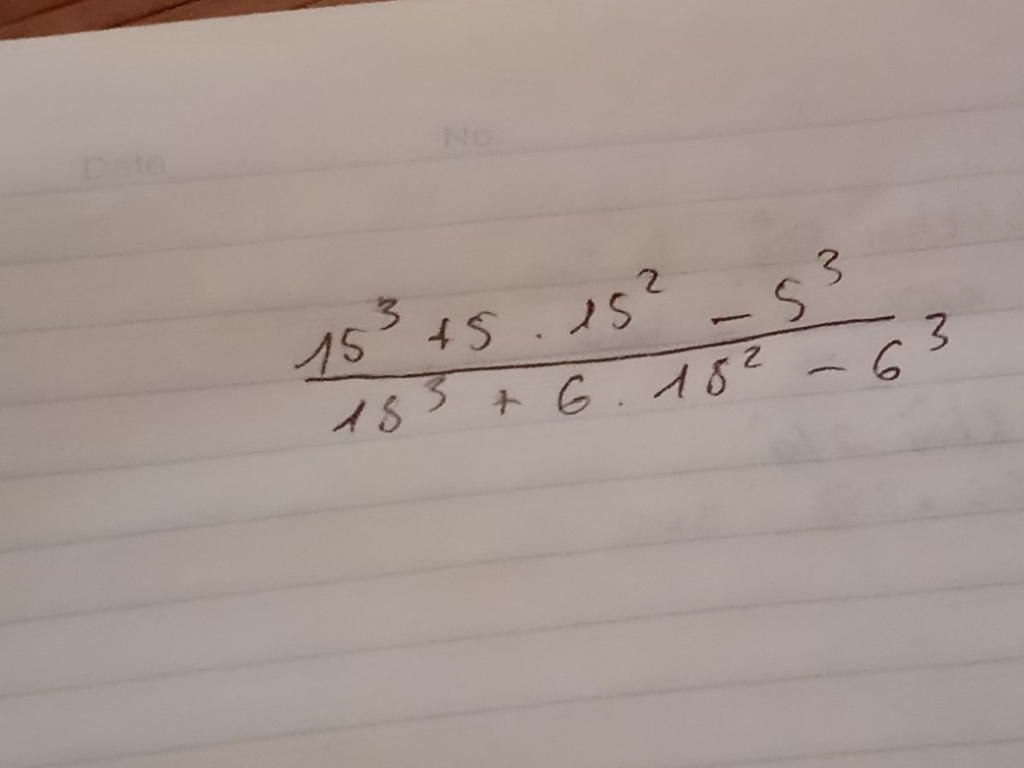 Date No.
15³ + 5 . 15² - 5³
18³ + 6 . 18² - 6³